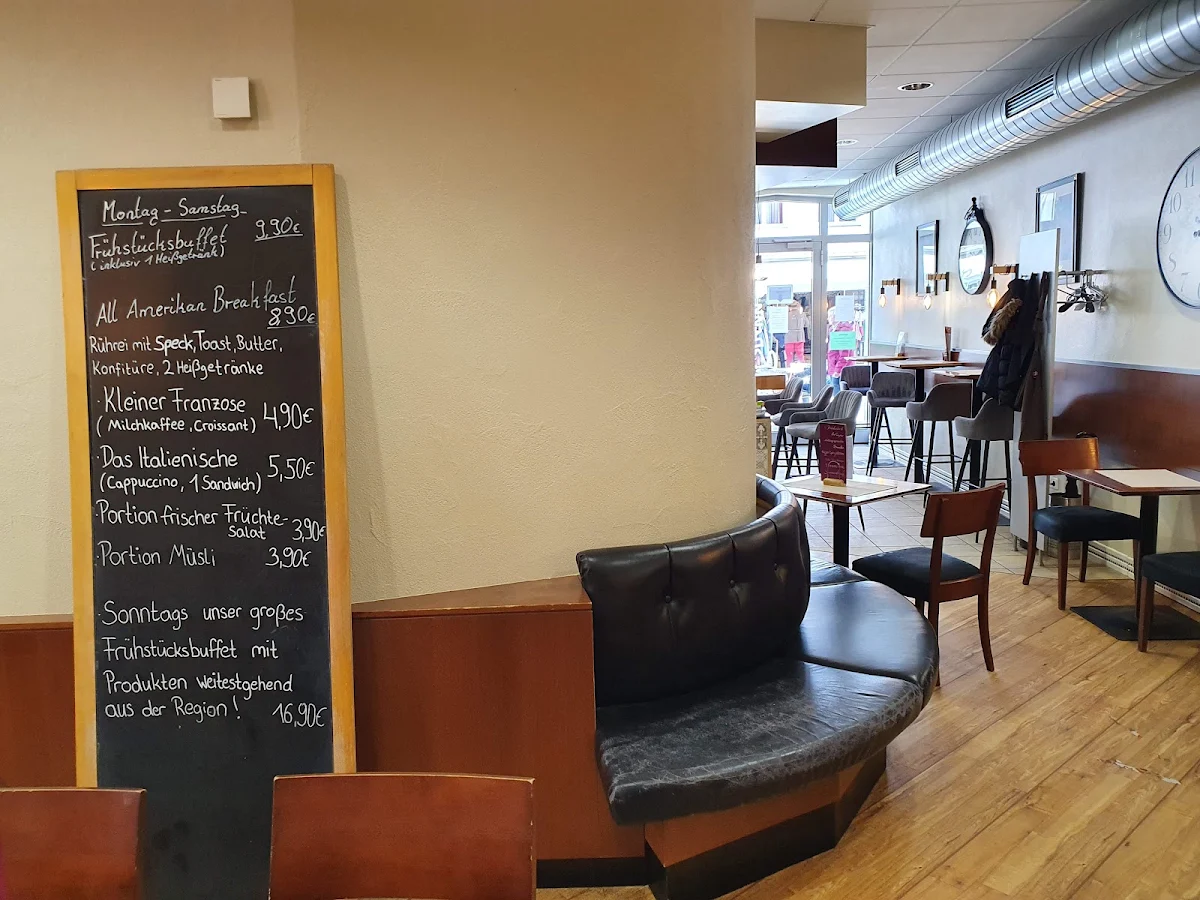 Montag - Samstag
Frühstücksbuffet 9,90€
(inklusiv 1 Heißgetränk)
All Amerikan Breakfast
8,90€
Rührei mit Speck, Toast, Butter,
Konfitüre, 2 Heißgetränke
·Kleiner Franzose
(Milchkaffee, Croissant) 4,90€
·Das Italienische
(Cappuccino, 1 Sandwich) 5,50€
·Portion frischer Früchte-
salat 3,90€
·Portion Müsli 3,90€
·Sonntags unser großes
Frühstücksbuffet mit
Produkten weitestgehend
aus der Region! 16,90€
11
10
9